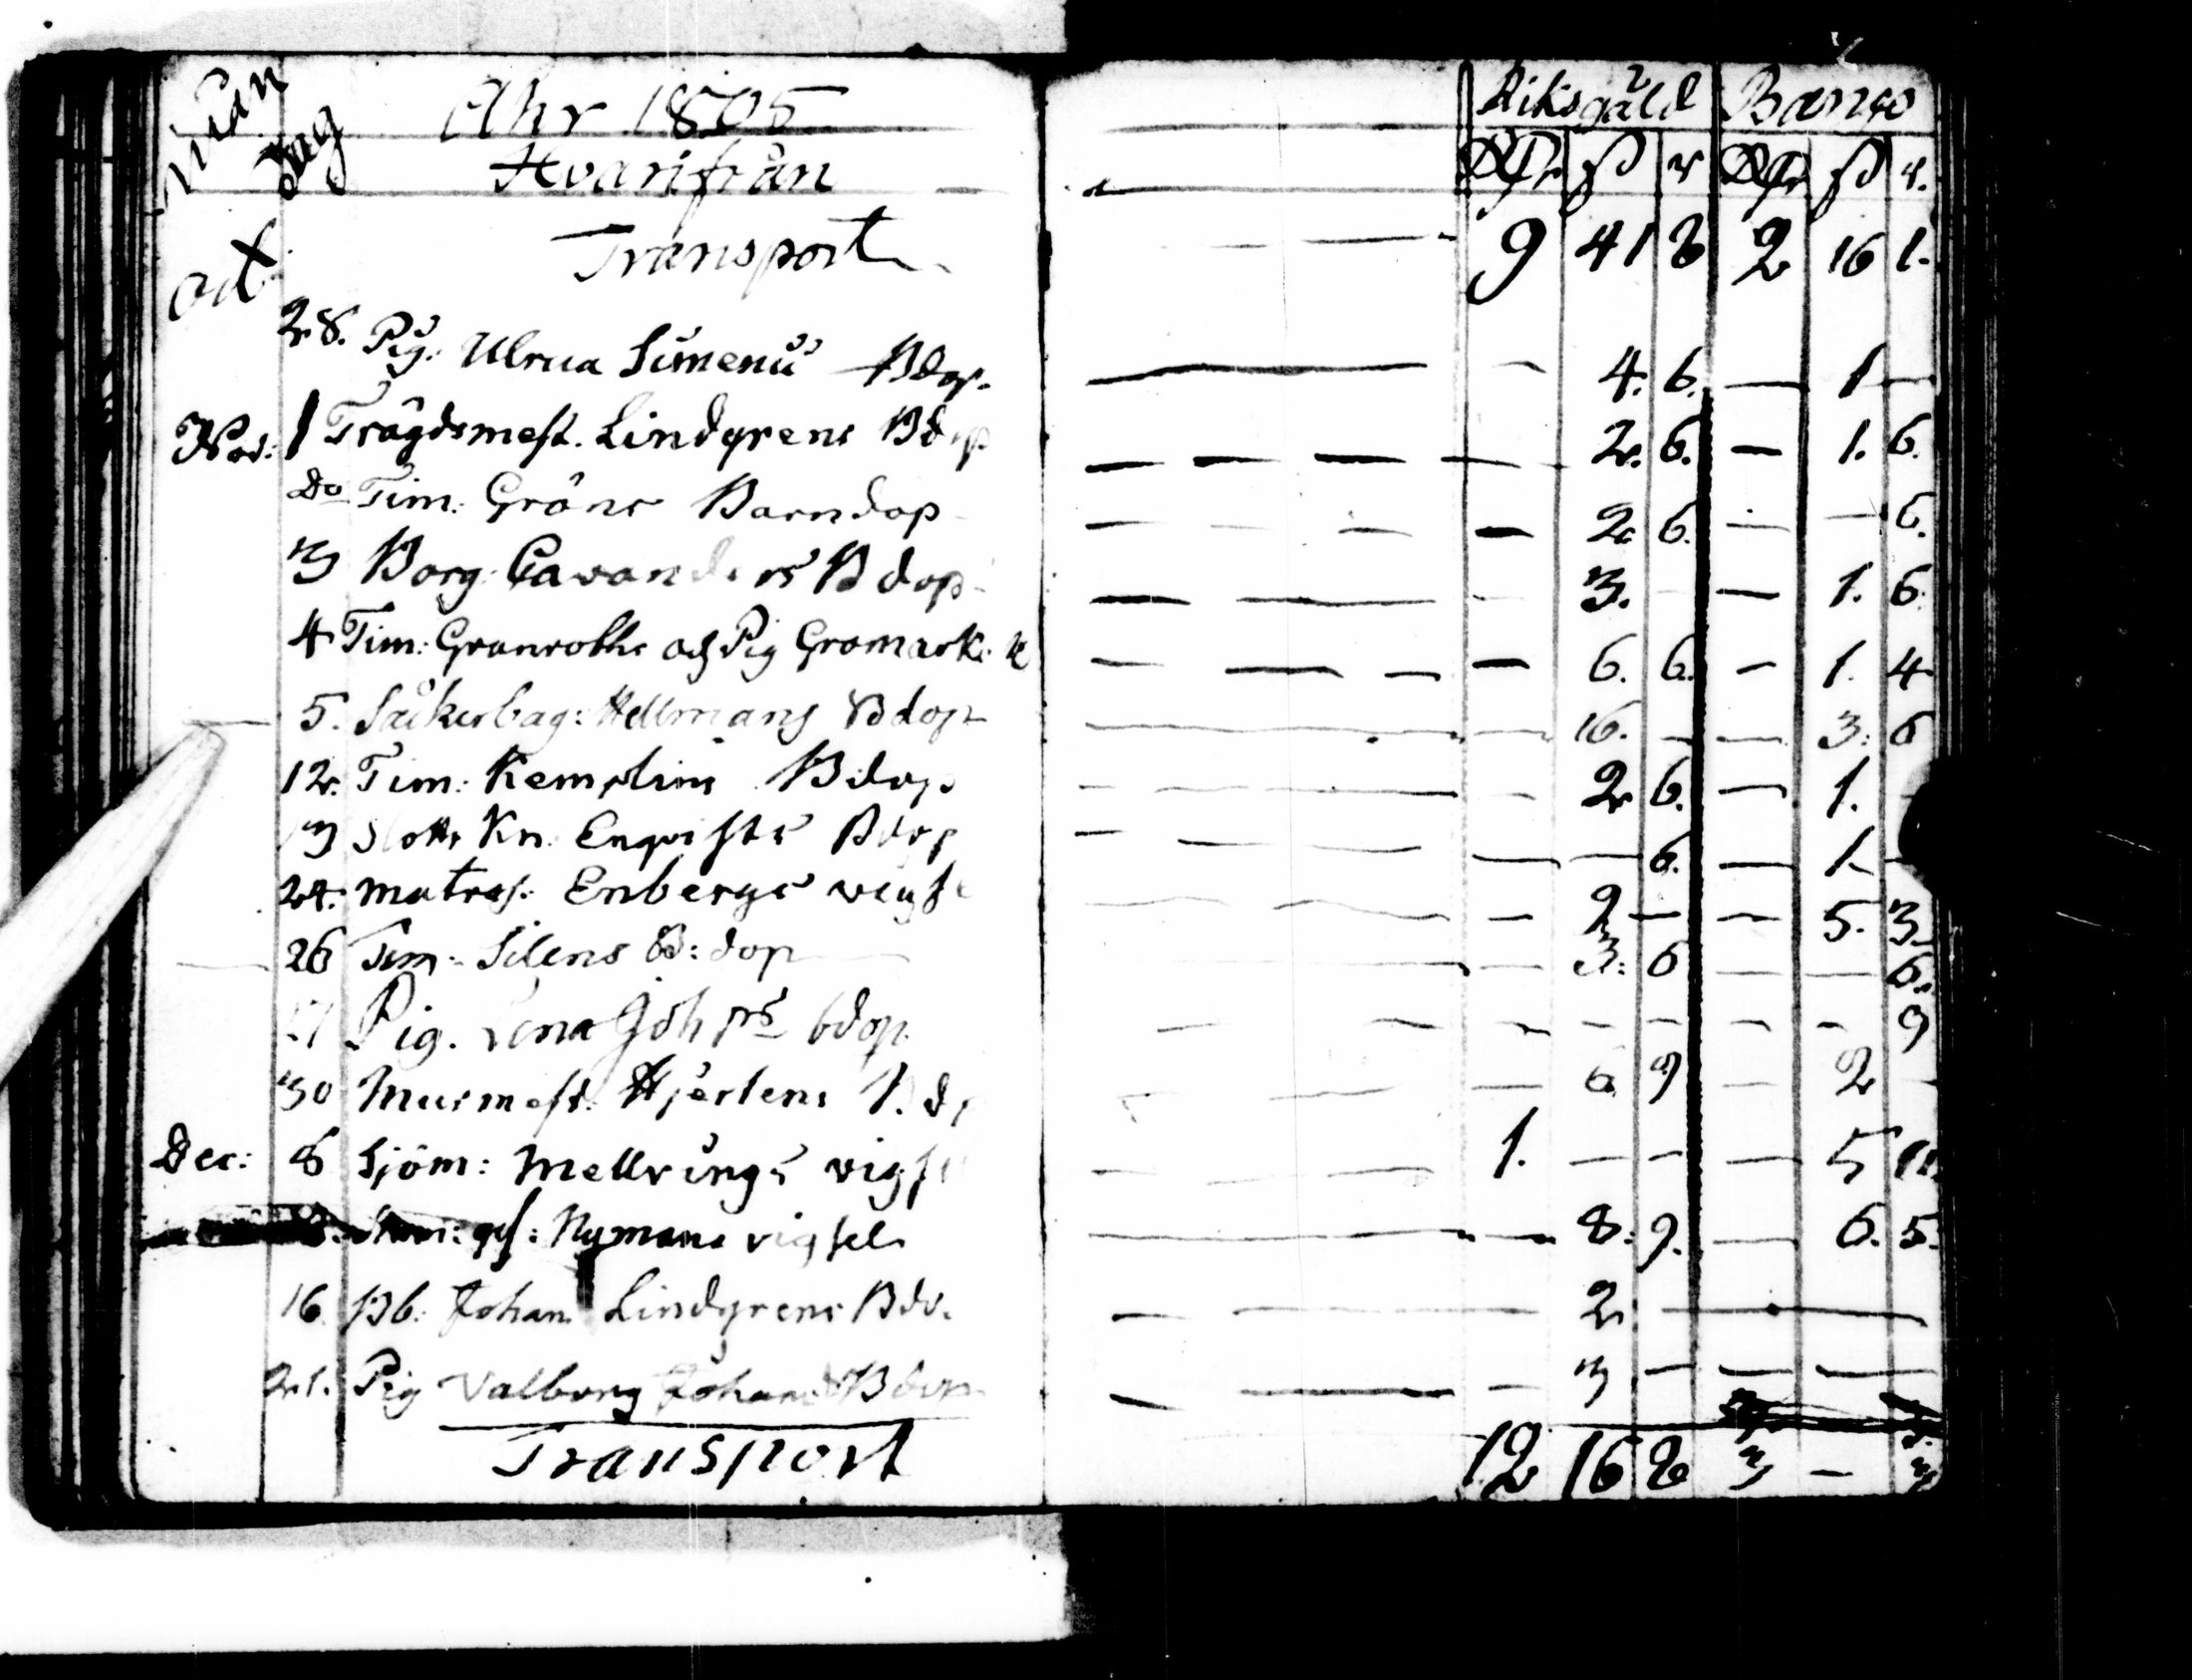 Mån Dag Åhr 1805 Riksgäld Banco
Hvarifrån Rdr ß r Rdr ß r.
Oct Transport 9 41 8 2 16 1.
28. Pig: Ulrica Simenii Bdop. — 4. 6. — 1 —
Nov: 1 Trägdsmest. Lindgrens Bdop — 2. 6. — 1. 6.
Do Tim: Gröns Barndop — 2 6. — — 6.
3 Borg: Cavanders Bdop — 3. — — 1. 6.
4 Tim: Granroths och Pig Gromark: — 6. 6. — 1. 4
5. Såckerbag: Hellmans Bdop — 16. — — 3: 6
12. Tim: Kemplins Bdop — 2 6. — 1. —
13 Slotts Kn: Enqvists Bdop — — 6. — 1. —
24. Matros: Enbergs vigsel — 2 — — 5. 3
26 Tim: Silens B: dop — 3: 6 — — 6.
27 Pig. Lena Joh bdop — — — — — 9
30 Murmest: Hjertens B. d — 6 9 — 2 —
Dec: 8 Sjöm: Mellrings vigsel 1. — — — 5 11
ges: Nymans vigsel — 8: 9. — 6. 5.
16. Johan Lindgrens Bdo. — 2 —
21. Pig Valborg Johans Bdop — 3 — — —
Transport 12 16 8 3 — 3